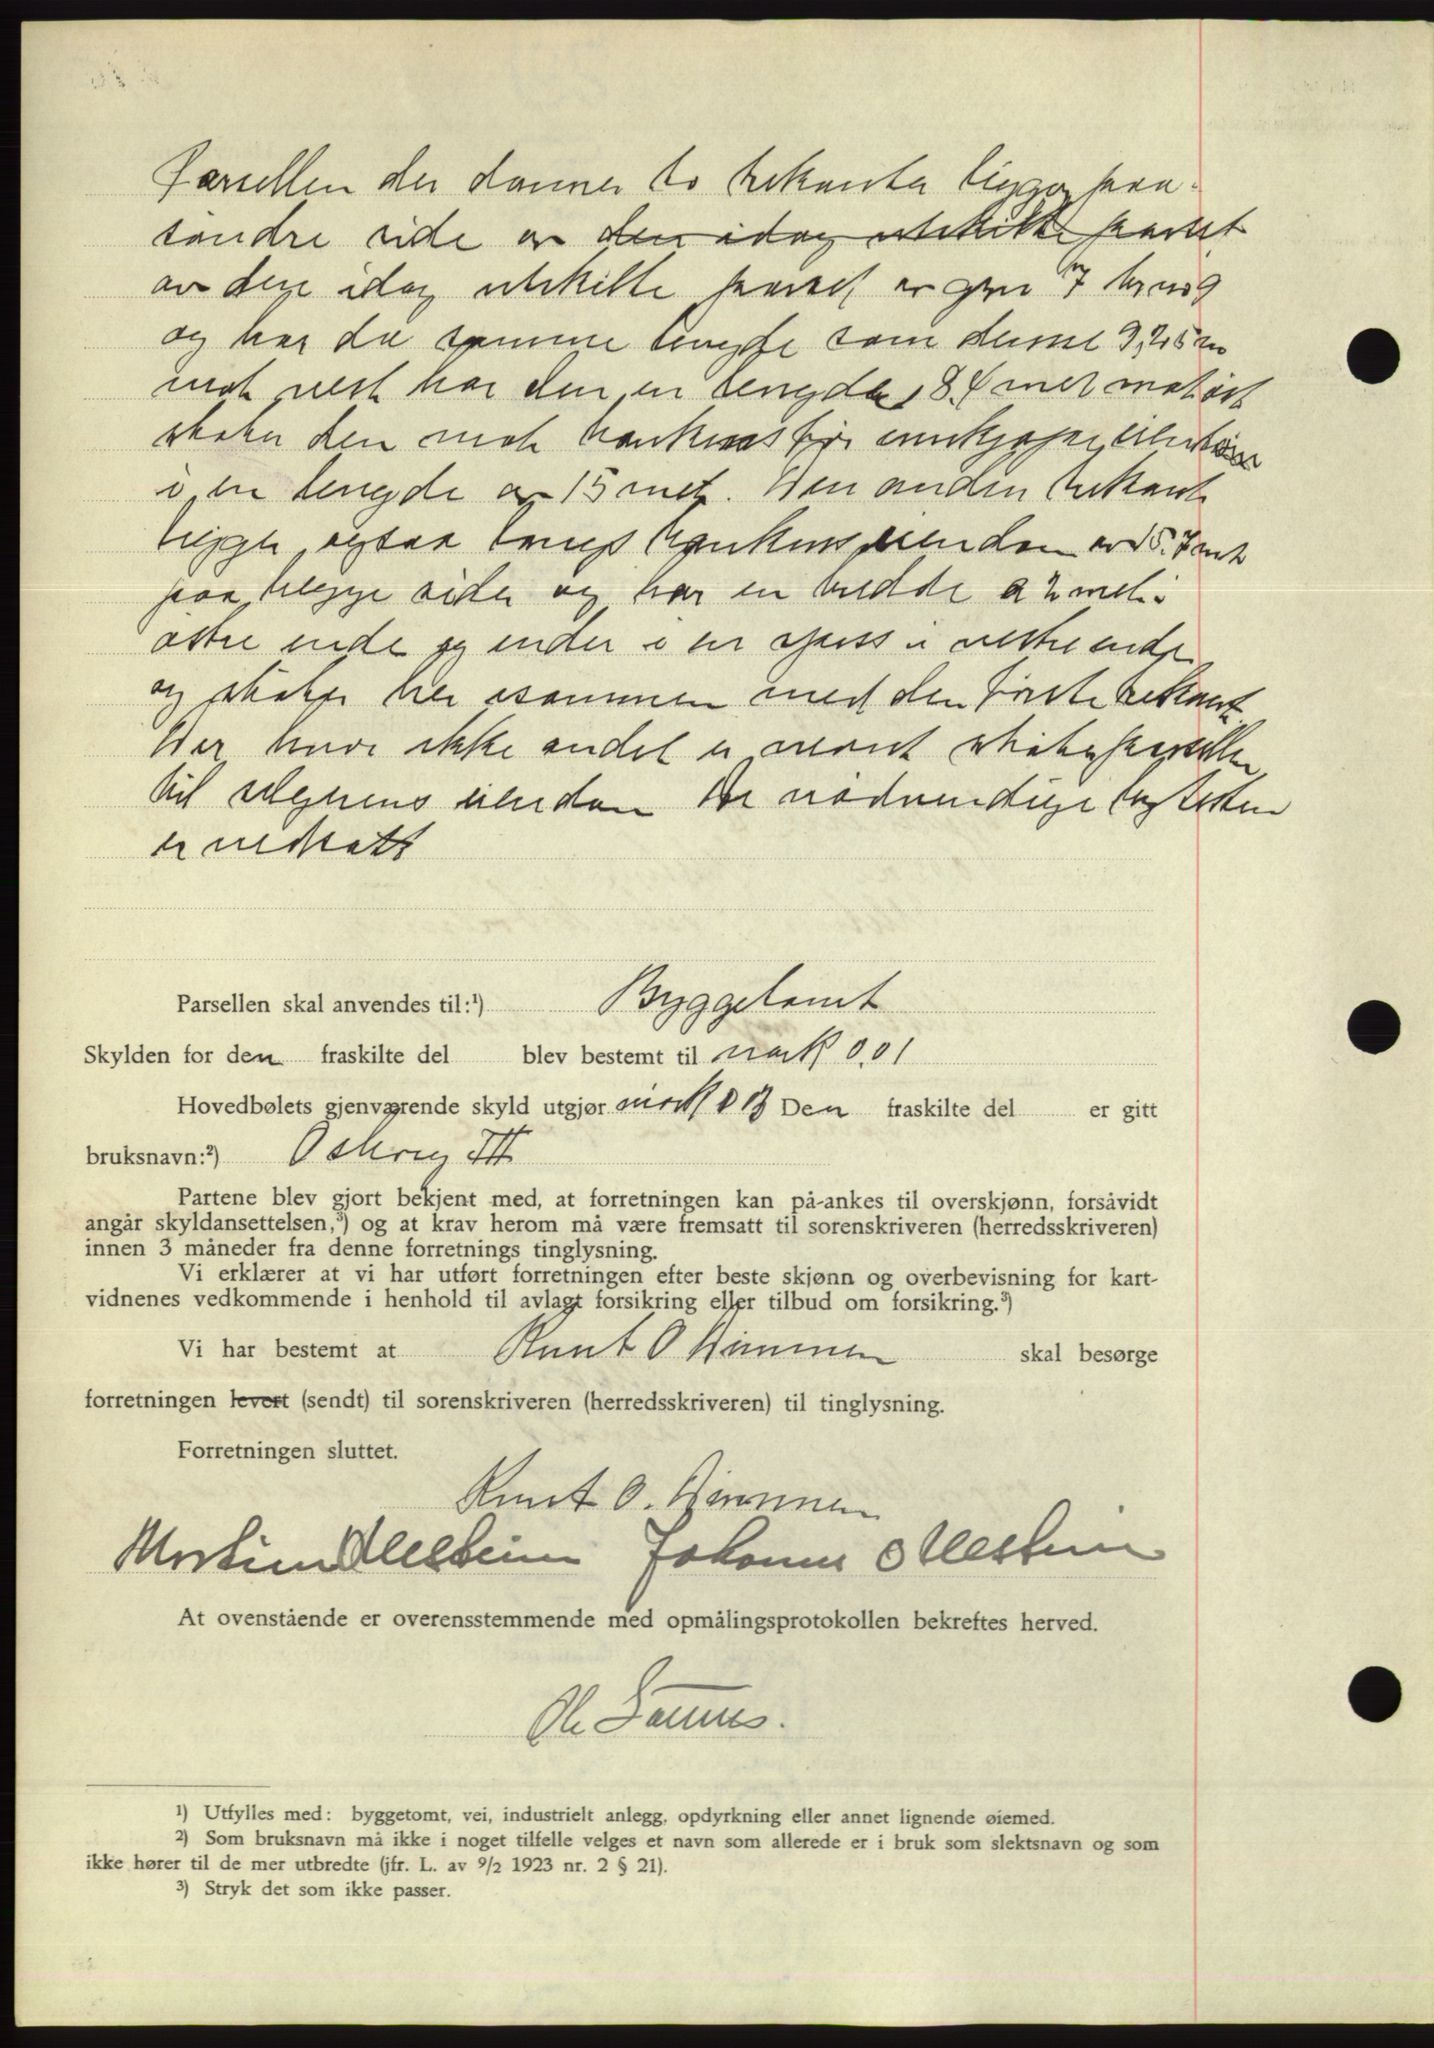 Parsellen der danner to trekanter ligger paa
søndre side av den idag utskilte parsel
av den idag utskilte parsel av gnr 7 br nr 9
og har da samme lengde som denne 9,25 m
mot vest har den en lengde 8.4 met mot øst
støter den mot bankens før innkjøpte eiendom
i en lengde av 15 met. Den anden trekant
ligger ogsaa langs bankens eiendom av 15.7 met
paa begge sider og har en bredde a 2 met i
østre ende og ender i en spiss i vestre ende
og støter her sammen med den første trekant.
Der hvor ikke andet er nevnt støter parsellen
til selgerens eiendom De nødvendige
er nedsatt
Parsellen skal anvendes til:¹) Byggetomt
Skylden for den fraskilte del blev bestemt til mark 0.01
Hovedbølets gjenværende skyld utgjør mark Den fraskilte del er gitt
bruksnavn:²) III
Partene blev gjort bekjent med, at forretningen kan på-ankes til overskjønn, forsåvidt
angår skyldansettelsen,³) og at krav herom må være fremsatt til sorenskriveren (herredsskriveren)
innen 3 måneder fra denne forretnings tinglysning.
Vi erklærer at vi har utført forretningen efter beste skjønn og overbevisning for kart-
vidnenes vedkommende i henhold til avlagt forsikring eller tilbud om forsikring.³)
Vi har bestemt at Knut O Dimmen skal besørge
forretningen levert (sendt) til sorenskriveren (herredsskriveren) til tinglysning.
Forretningen sluttet.
Knut O. Dimmen
Johannes O
At ovenstående er overensstemmende med opmålingsprotokollen bekreftes herved.
Ole
¹) Utfylles med: byggetomt, vei, industrielt anlegg, opdyrkning eller annet lignende øiemed.
²) Som bruksnavn må ikke i noget tilfelle velges et navn som allerede er i bruk som slektsnavn og som
ikke hører til de mer utbredte (jfr. L. av 9/2 1923 nr. 2 § 21).
³) Stryk det som ikke passer.